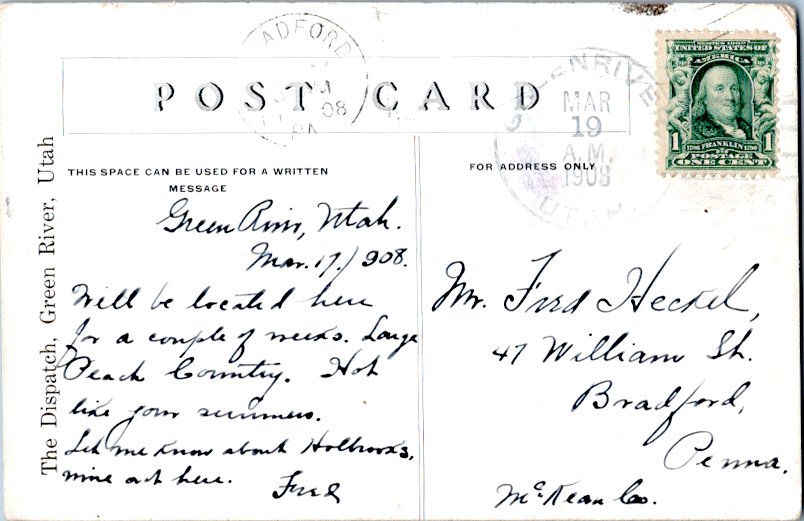 BRADFORD
08
PA.
POST CARD
GREENRIVER
MAR
19
A.M.
1908
UTAH
SERIES 1902
UNITED STATES OF
AMERICA
1 1
1706 FRANKLIN 1790
POSTAGE
ONE CENT
The Dispatch, Green River, Utah
THIS SPACE CAN BE USED FOR A WRITTEN
MESSAGE
Green River, Utah.
Mar. 17/908.
Will be located here
for a couple of weeks. Large
Peach Country. Hot
like your summers.
Let me know about Holbrooks,
mine out here.
Fred
FOR ADDRESS ONLY
Mr. Fred Heckel,
47 William St.
Bradford,
Penna.
McKean Co.